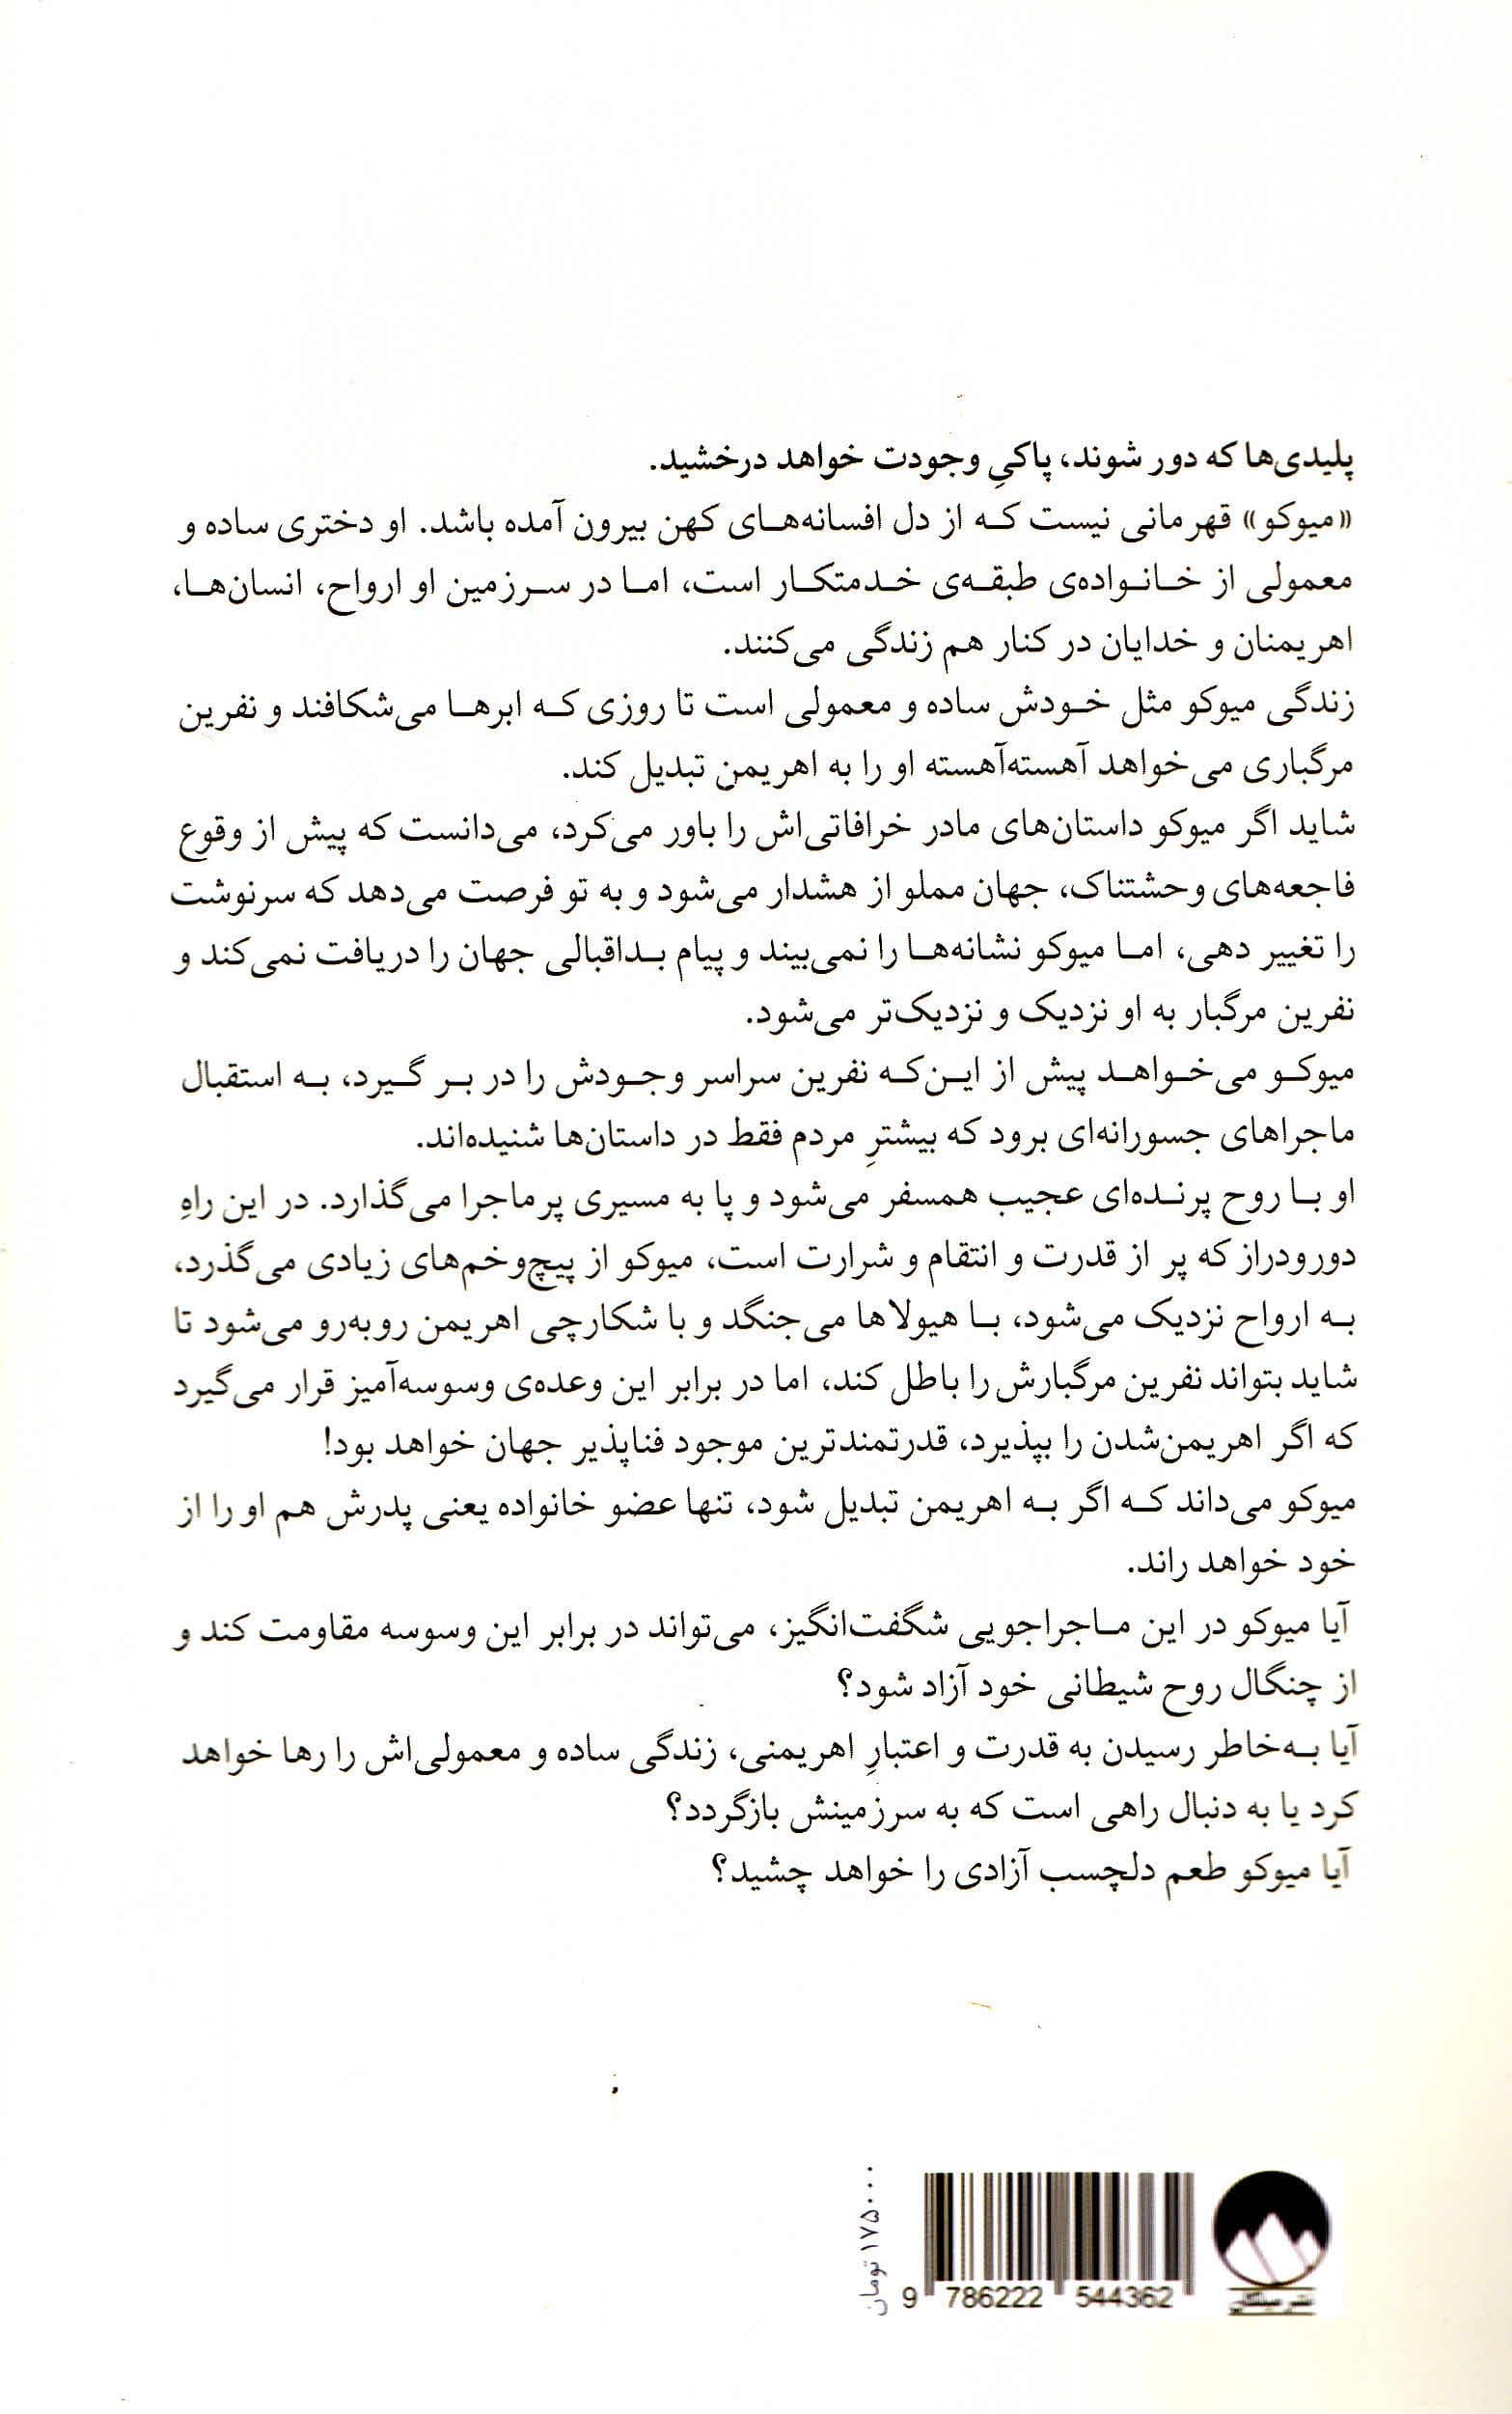 پلیدی‌ها که دور شوند، پاکیِ وجودت خواهد درخشید.
«میوکو» قهرمانی نیست که از دل افسانه‌های کهن بیرون آمده باشد. او دختری ساده و
معمولی از خانواده‌ی طبقه‌ی خدمتکار است، اما در سرزمین او ارواح، انسان‌ها،
اهریمنان و خدایان در کنار هم زندگی می‌کنند.
زندگی میوکو مثل خودش ساده و معمولی است تا روزی که ابرها می‌شکافند و نفرین
مرگباری می‌خواهد آهسته‌آهسته او را به اهریمن تبدیل کند.
شاید اگر میوکو داستان‌های مادر خرافاتی‌اش را باور می‌کرد، می‌دانست که پیش از وقوع
فاجعه‌های وحشتناک، جهان مملو از هشدار می‌شود و به تو فرصت می‌دهد که سرنوشت
را تغییر دهی، اما میوکو نشانه‌ها را نمی‌بیند و پیام بداقبالی جهان را دریافت نمی‌کند و
نفرین مرگبار به او نزدیک و نزدیک‌تر می‌شود.
میوکو می‌خواهد پیش از این‌که نفرین سراسر وجودش را در بر گیرد، به استقبال
ماجراهای جسورانه‌ای برود که بیشترِ مردم فقط در داستان‌ها شنیده‌اند.
او با روح پرنده‌ای عجیب همسفر می‌شود و پا به مسیری پرماجرا می‌گذارد. در این راهِ
دورودراز که پر از قدرت و انتقام و شرارت است، میوکو از پیچ‌وخم‌های زیادی می‌گذرد،
به ارواح نزدیک می‌شود، با هیولاها می‌جنگد و با شکارچی اهریمن روبه‌رو می‌شود تا
شاید بتواند نفرین مرگبارش را باطل کند، اما در برابر این وعده‌ی وسوسه‌آمیز قرار می‌گیرد
که اگر اهریمن‌شدن را بپذیرد، قدرتمندترین موجود فناپذیر جهان خواهد بود!
میوکو می‌داند که اگر به اهریمن تبدیل شود، تنها عضو خانواده یعنی پدرش هم او را از
خود خواهد راند.
آیا میوکو در این ماجراجویی شگفت‌انگیز، می‌تواند در برابر این وسوسه مقاومت کند و
از چنگال روح شیطانی خود آزاد شود؟
آیا به‌خاطر رسیدن به قدرت و اعتبارِ اهریمنی، زندگی ساده و معمولی‌اش را رها خواهد
کرد یا به دنبال راهی است که به سرزمینش بازگردد؟
آیا میوکو طعم دلچسب آزادی را خواهد چشید؟
۱۷۵۰۰۰ تومان
9 786222 544362